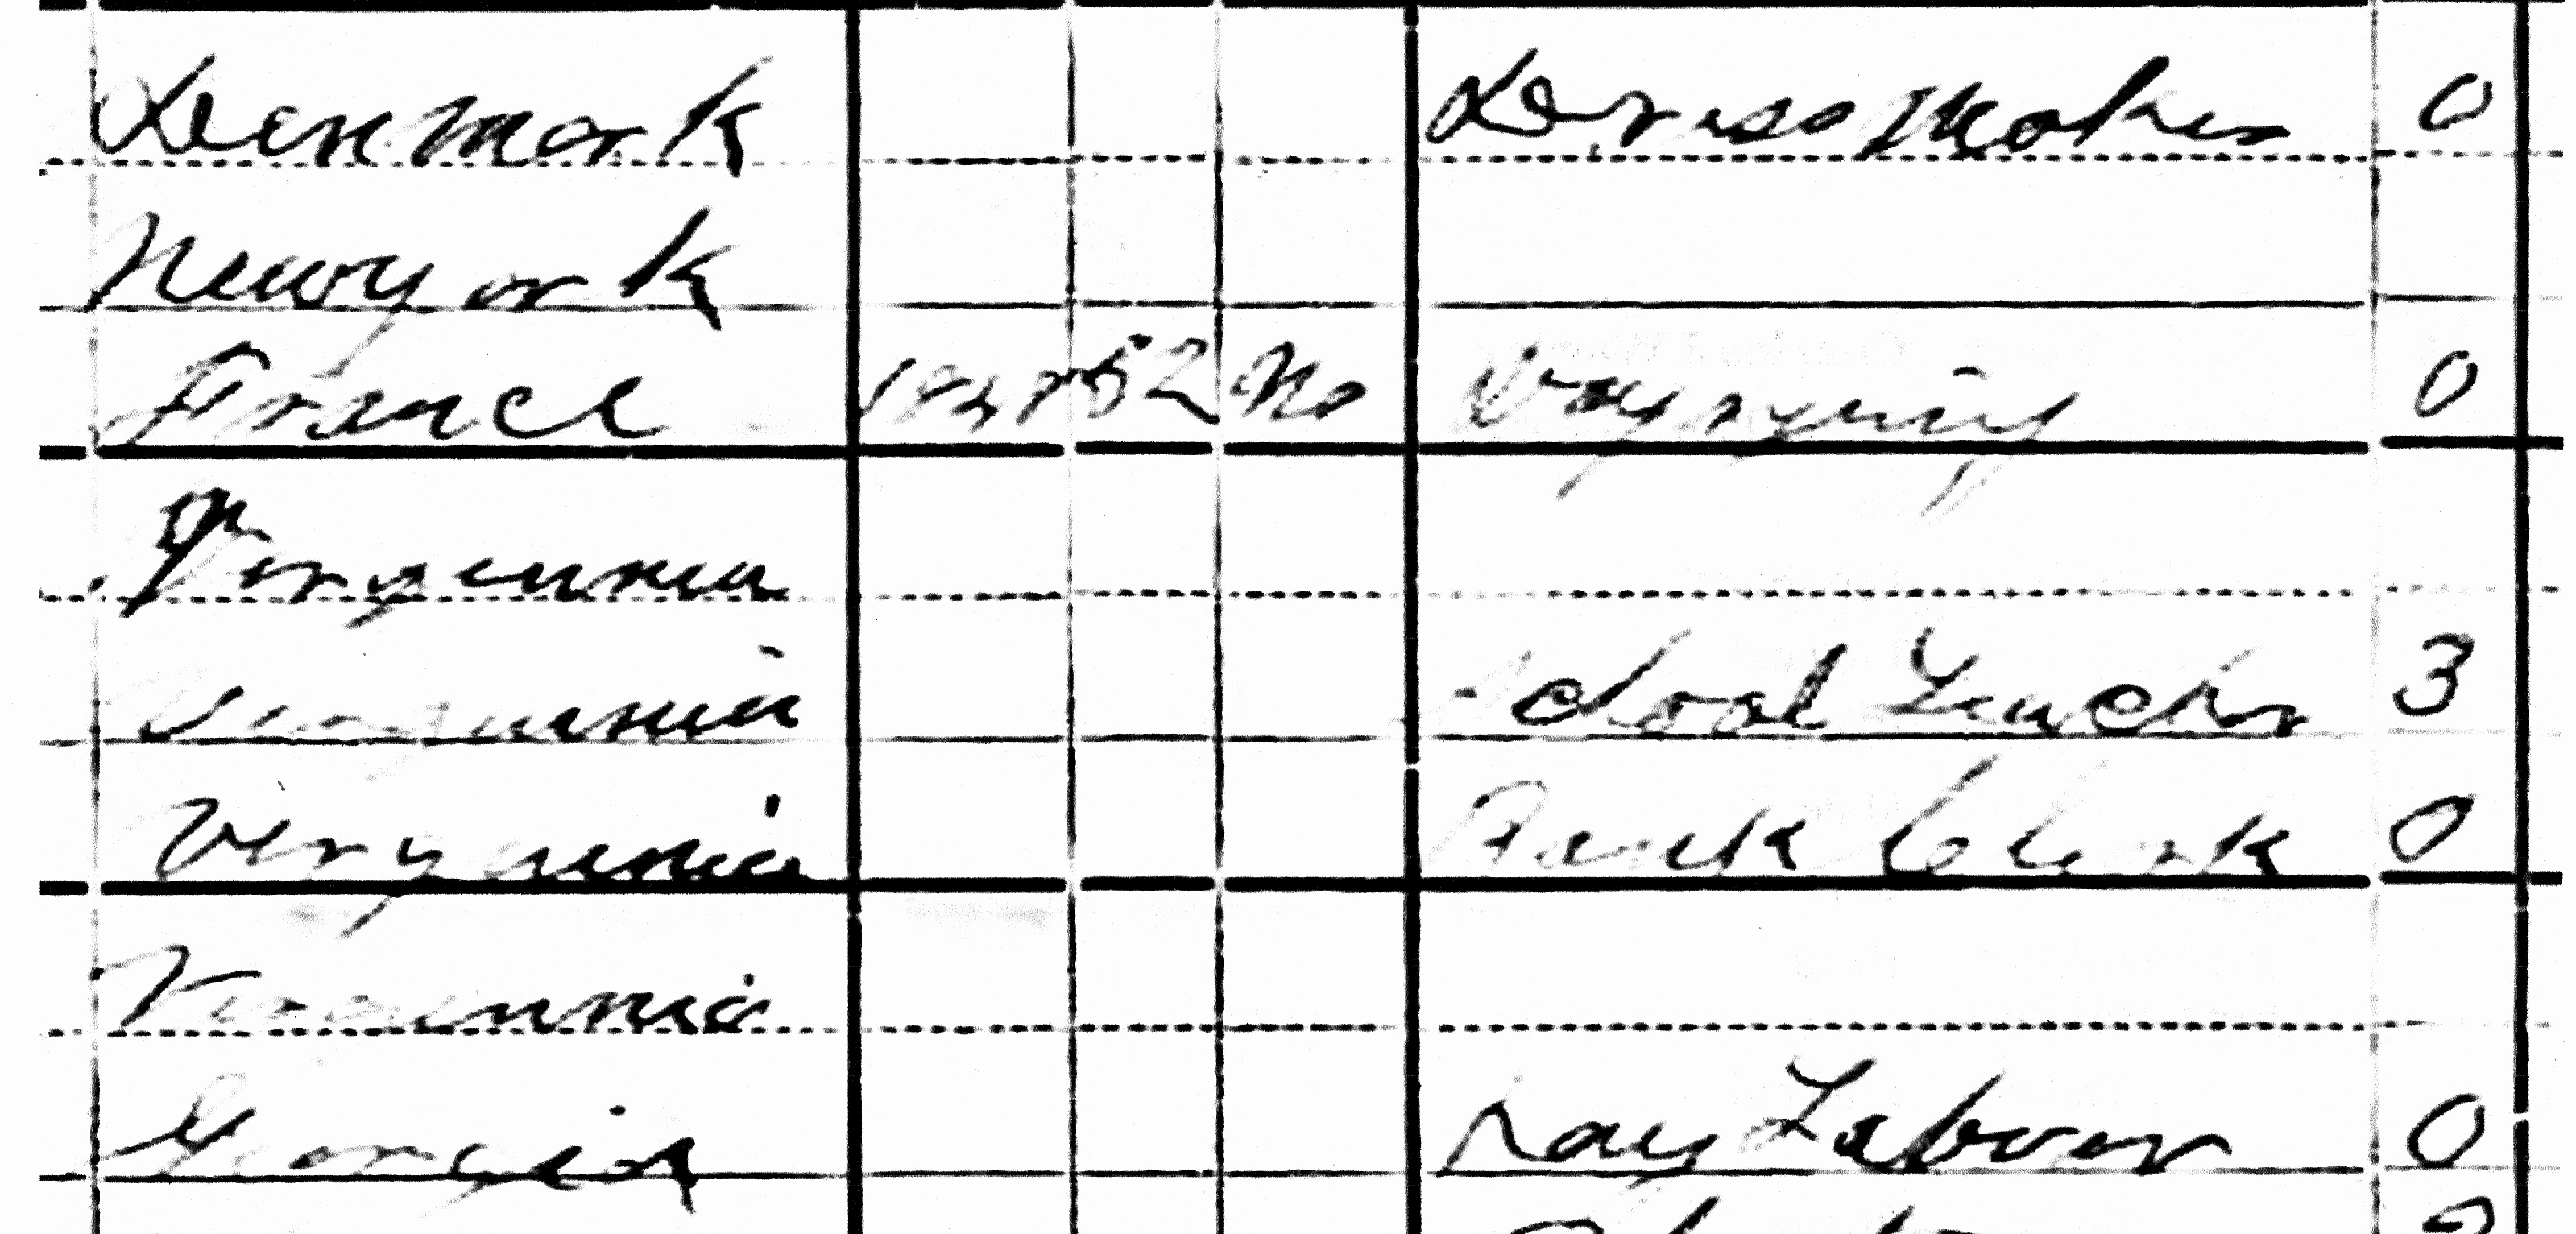 Denmark Dress Maker 0
New york
France 1848 52 No 0
Virginnia
Virginnia School Teacher 3
Virginnia Bank Clerk 0
Virginnia
Georgia Day Labor 0